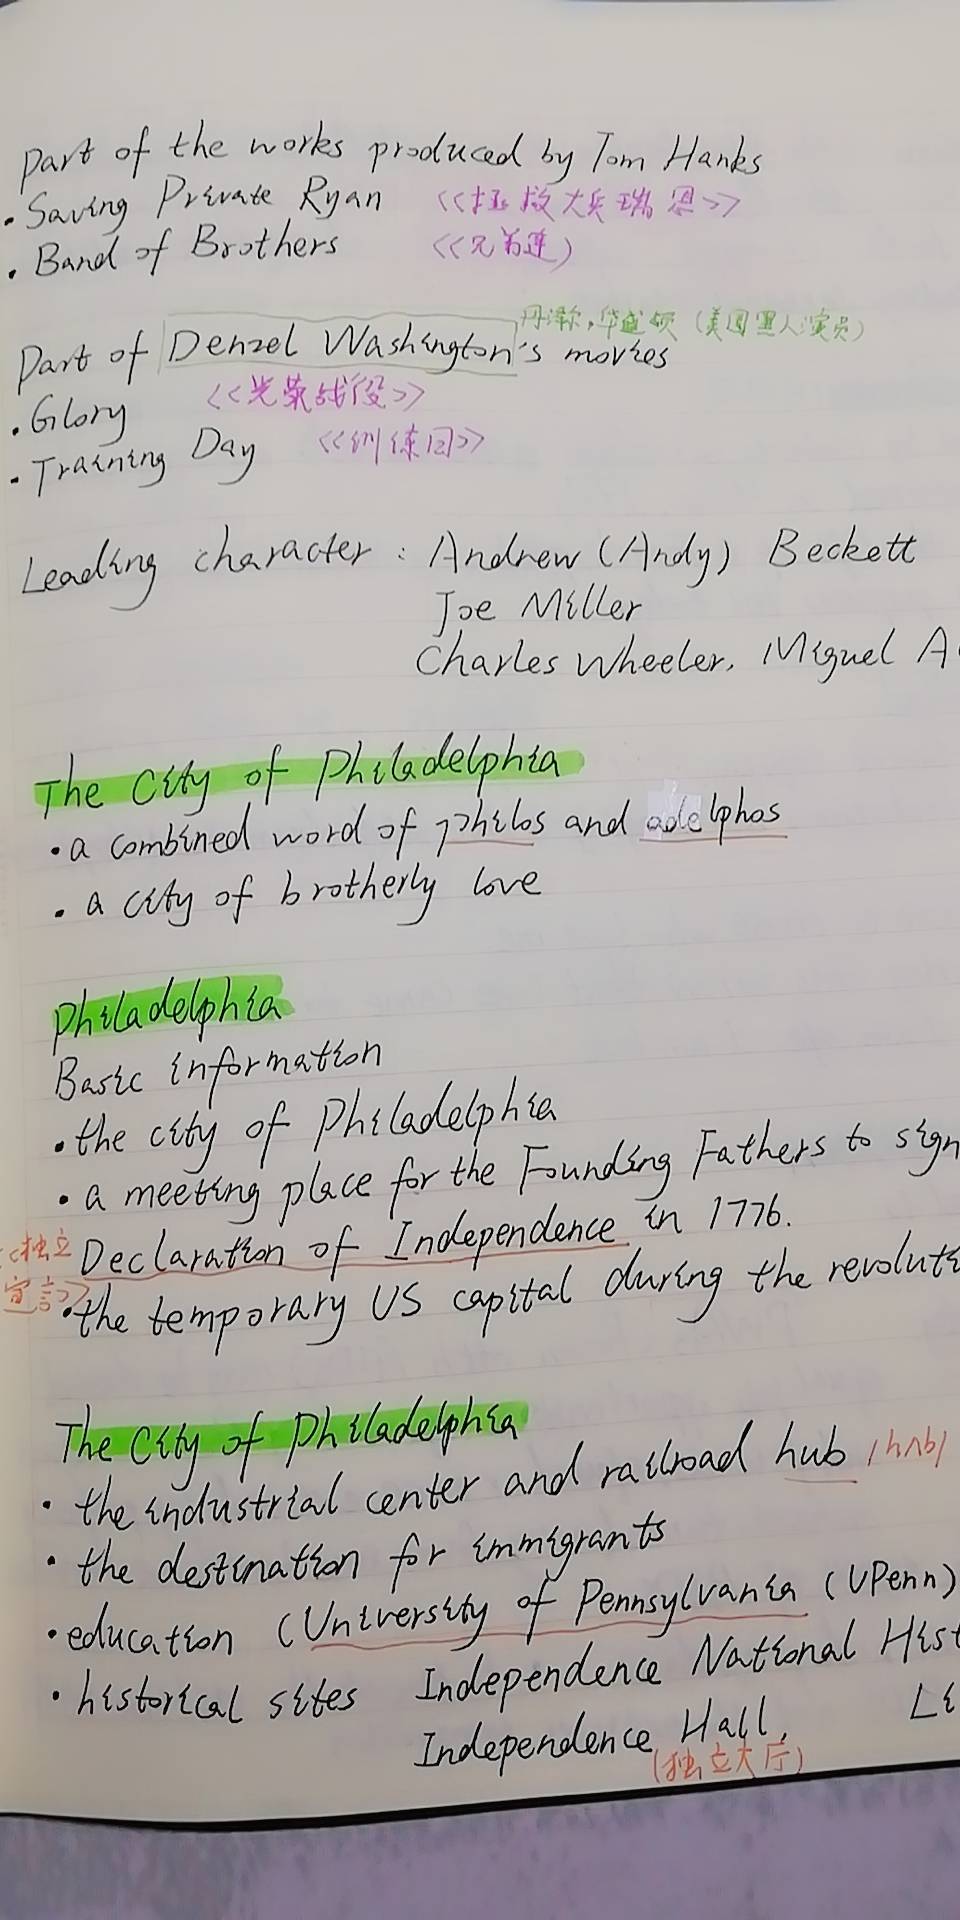 Part of the works produced by Tom Hanks
·Saving Private Ryan <<拯救大兵瑞恩>>
·Band of Brothers <<兄弟连>
丹泽尔,华盛顿(美国黑人演员)
Part of Denzel Washington's movies
·Glory <<光荣战役>>
·Training Day <<训练日>>
Leading character: Andrew (Andy) Beckett
Joe Miller
Charles Wheeler, Miguel A
The City of Philadelphia
·a combined word of philos and adelphos
·a city of brotherly love
Philadelphia
Basic information
·the city of Philadelphia
·a meeting place for the Founding Fathers to sign
<<独立 Declaration of Independence in 1776.
宣言>> ·the temporary US capital during the revoluti
The City of Philadelphia
·the industrial center and railroad hub /hʌb/
·the destination for immigrants
·education (University of Pennsylvania (UPenn)
·historical sites Independence National Hist
Independence Hall, Li
(独立大厅)